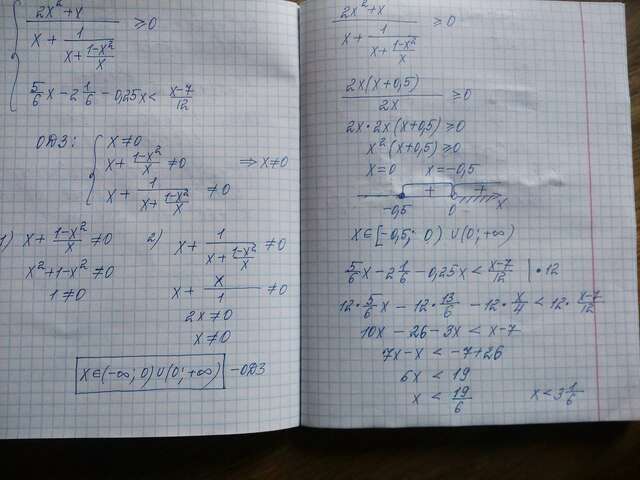 (2x²+x)/(x + 1/(x + (1-x²)/x)) ≥0
5/6 x - 2 1/6 - 0,25x < (x-7)/12
ОДЗ: { x ≠0
x + (1-x²)/x ≠0 ⇒ x≠0
x + 1/(x + (1-x²)/x) ≠0
1) x + (1-x²)/x ≠0
x²+1-x² ≠0
1 ≠0
2) x + 1/(x + (1-x²)/x) ≠0
x + x/1 ≠0
2x ≠0
x ≠0
x∈(-∞; 0)∪(0; +∞) - ОДЗ
(2x²+x)/(x + 1/(x + (1-x²)/x)) ≥0
2x(x+0,5)/2x ≥0
2x·2x(x+0,5) ≥0
x²(x+0,5) ≥0
x=0 x=-0,5
+ +
-0,5 0 x
x∈[-0,5; 0) ∪(0; +∞)
5/6 x - 2 1/6 - 0,25x < (x-7)/12 | ·12
12· 5/6 x - 12· 13/6 - 12· x/4 < 12· (x-7)/12
10x - 26 - 3x < x-7
7x - x < -7+26
6x < 19
x < 19/6 x < 3 1/6